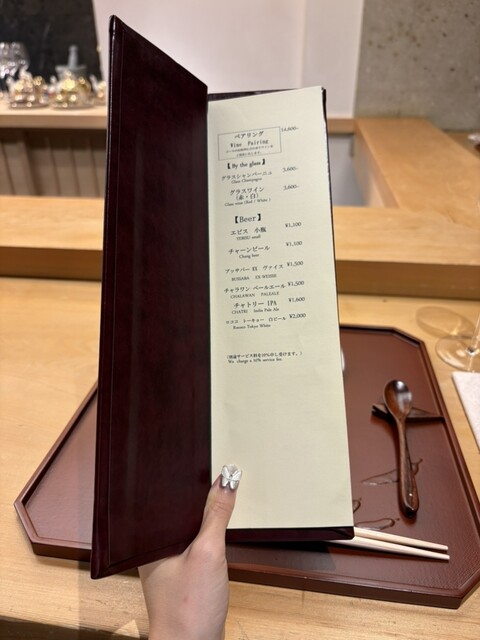 ペアリング 14,000-
Wine Pairing
【By the glass】
グラスシャンパーニュ 3,000-
Glass Champagne
グラスワイン 3,000-
(赤・白)
Glass wine (Red / White)
【Beer】
エビス 小瓶 ¥1,100
YEBISU small
チャーンビール ¥1,100
Chang beer
ブッサバー EX ヴァイス ¥1,500
BUSSABA EX WEISSE
チャラワン ペールエール ¥1,500
CHALAWAN PALEALE
チャトリー IPA ¥1,600
CHATRI India Pale Ale
ロココ トーキョー 白ビール ¥2,000
Rococo Tokyo White
(別途サービス料を10%申し受けます。)
We charge a 10% service fee.